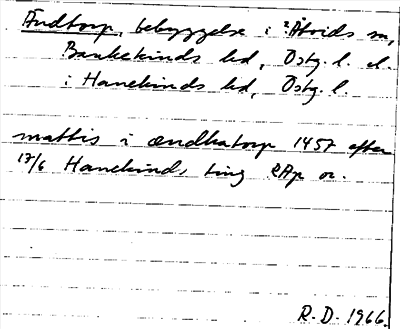 Ändtorp, bebyggelse i ²Åtvids sn,
Bankekinds hd, Östg. l. el.
i Hanekinds hd, Östg. l.
mattis i ændhatorp 1457 efter
17/6 Hanekinds ting RAp or.
R.D. 1966.